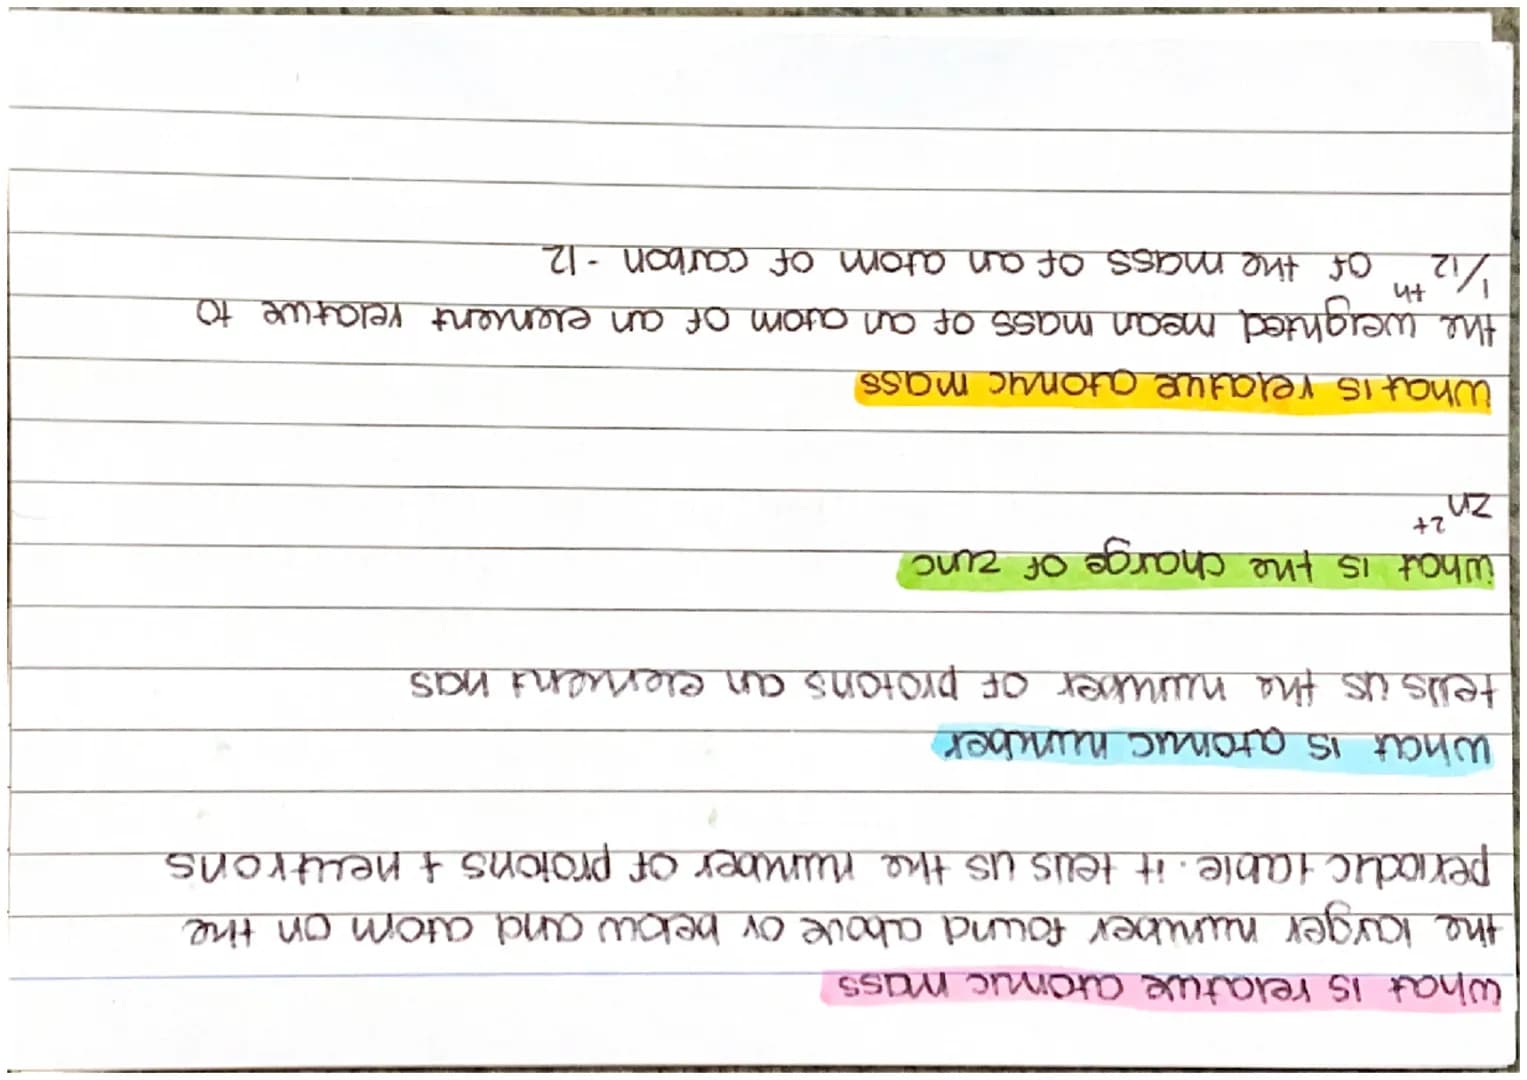 what is relative atomic mass
the larger number found above or below and atom on the
periodic table. it tells us the number of protons + neutrons
what is atomic number
tells us the number of protons an element has
what is the charge of zinc
Zn²⁺
what is relative atomic mass
the weighted mean mass of an atom of an element relative to
1/12ᵗʰ of the mass of an atom of carbon - 12